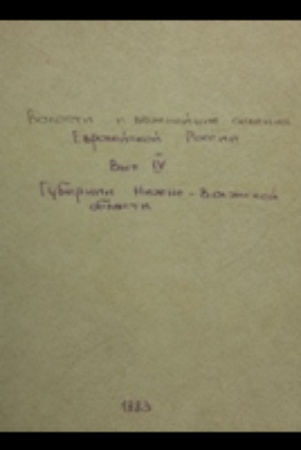 Волости и важнейшие селения
Европейской России
Вып IV
Губернии Нижне-Волжской
области
1883